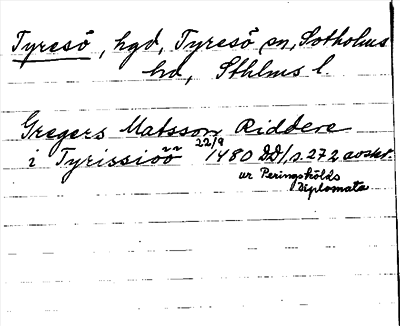 Tyresö, hgd, Tyresö sn, Sotholms
hd, Sthlms l.
Gregers Matsson Riddere
i Tyrissiöö 22/9 1480 DD/s. 272 avskr.
ur Peringskölds
Diplomata